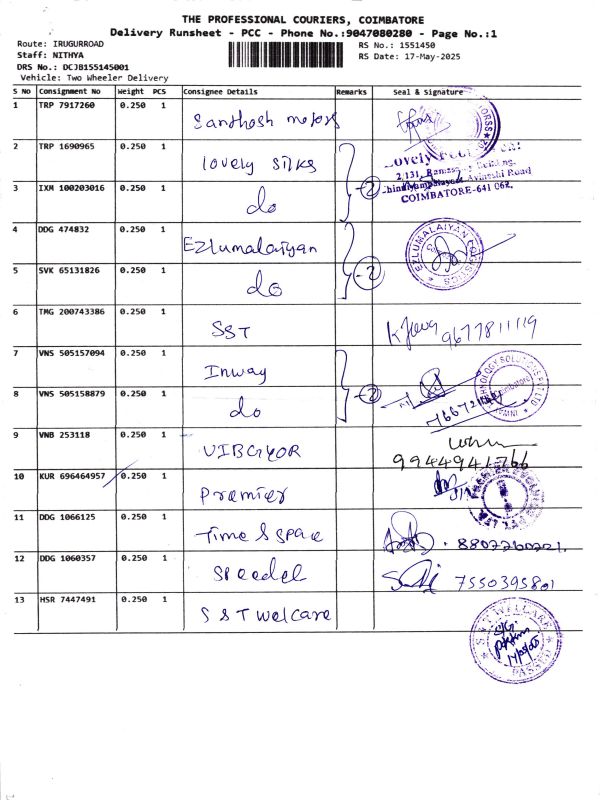 THE PROFESSIONAL COURIERS, COIMBATORE
Delivery Runsheet - PCC - Phone No.:9047080280 - Page No.:1
Route: IRUGURROAD
RS No.: 1551450
Staff: NITHYA
RS Date: 17-May-2025
DRS No.: DCJB155145001
Vehicle: Two Wheeler Delivery
S No Consignment No Weight PCS Consignee Details Remarks Seal & Signature
1 TRP 7917260 0.250 1 Santhosh motors
2 TRP 1690965 0.250 1 lovely silks
2/131,
Avinashi Road
COIMBATORE-641 062.
3 IXM 100203016 0.250 1 do -2
4 DDG 474832 0.250 1 Ezlumalaiyan
EZLUMALAIYAN LOGISTICS
5 SVK 65131826 0.250 1 do -2
6 TMG 200743386 0.250 1 SST 9677811119
7 VNS 505157094 0.250 1 Inway
8 VNS 505158879 0.250 1 do -2
9 VNB 253118 0.250 1 VIBGYOR
9944941766
10 KUR 696464957 0.250 1 Premier
11 DDG 1066125 0.250 1 Time & space
12 DDG 1060357 0.250 1 Speedel 7550395801
13 HSR 7447491 0.250 1 SST welcare
PASSED